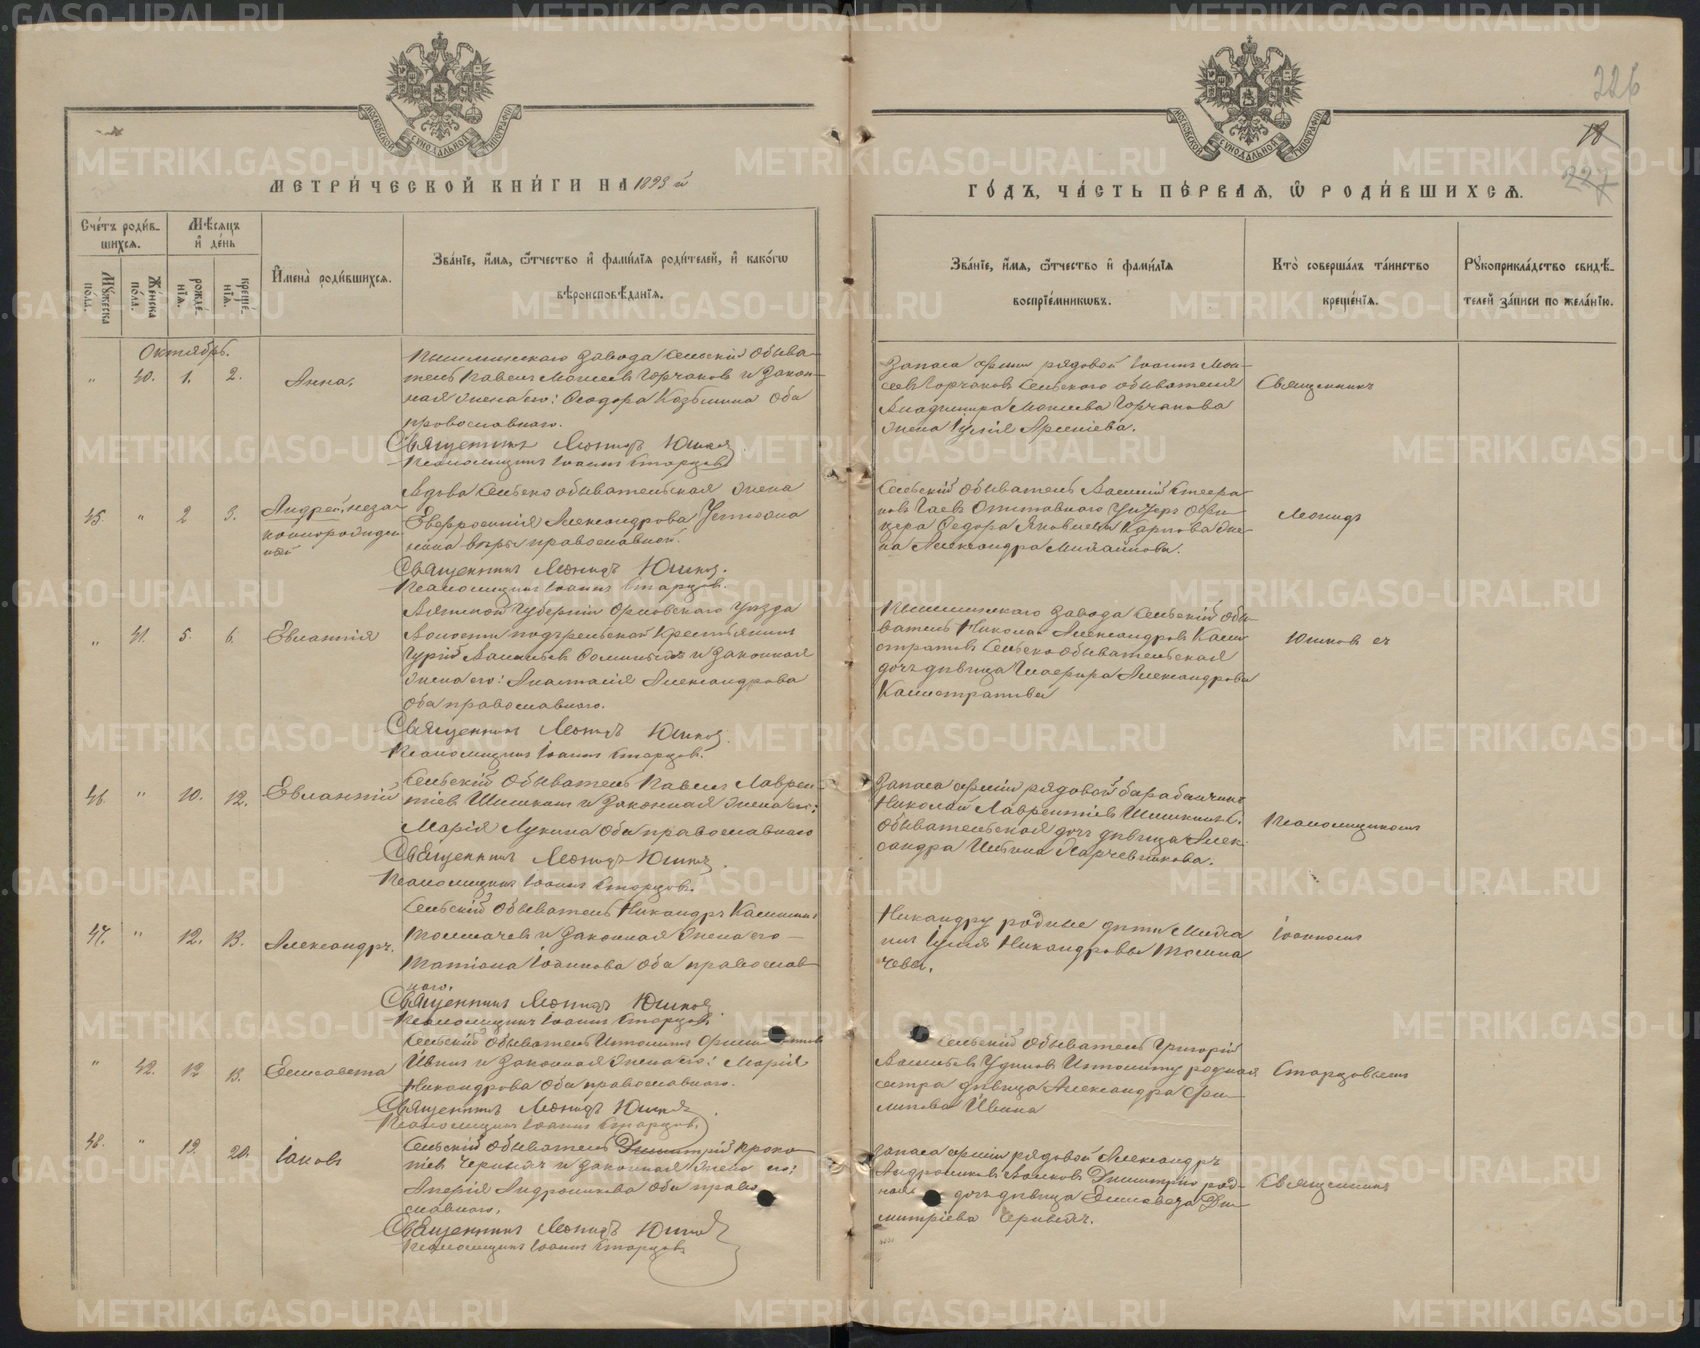 METRIKI.GASO-URAL.RU
226
18
227
МОСКОВСКОЙ СѴНОДАЛЬНОЙ ТИПОГРАФІИ
МЕТРИ́ЧЕСКОЙ КНИ́ГИ НА 1893 й
Сче́тъ роди́в-
шихсѧ.
Мѣ́сѧцъ
и҆ де́нь
Мꙋ́жеска
по́ла.
Же́нска
по́ла.
рожде́-
нїѧ.
креще́-
нїѧ.
И҆мена̀ роди́вшихсѧ.
Зва́нїе, и҆́мѧ, ѻ҆́тчество и҆ фами́лїѧ роди́телей, и҆ како́гѡ
вѣроисповѣ́данїѧ.
Октябрь.
" 40. 1. 2.
Анна.
Пышминскаго завода Сельскій Обыва-
тель Павелъ Моисеевъ Горчаковъ и закон-
ная жена его: Ѳеодора Козьмина Оба
православнаго.
Священникъ Леонидъ Юшковъ
Псаломщикъ Іоаннъ Старцовъ
45. " 2 3.
Андрей, неза-
коннорожден
ный
Вдова Сельско обывательская жена
Евфросинія Александрова
вѣры православной.
Священникъ Леонидъ Юшковъ.
Псаломщикъ Іоаннъ Старцовъ.
" 41. 5. 6.
Евлампія
Вятской Губерніи Орловскаго Уѣзда
Волости Крестьянинъ
Гурій Васильевъ и законная
жена его: Анастасія Александрова
Оба православнаго.
Священникъ Леонидъ Юшковъ
Псаломщикъ Іоаннъ Старцовъ.
46. " 10. 12.
Евлампій
Сельскій Обыватель Павелъ Лаврен-
тіевъ Шишкинъ и законная жена его:
Марія Лукина Оба православнаго
Священникъ Леонидъ Юшковъ.
Псаломщикъ Іоаннъ Старцовъ.
47. " 12. 13.
Александръ.
Сельскій Обыватель Никандръ
Толмачевъ и законная жена его
Татіана Іоаннова Оба православ-
наго.
Священникъ Леонидъ Юшковъ
Псаломщикъ Іоаннъ Старцовъ.
" 42. 12 13.
Елисавета
Сельскій Обыватель Ипполитъ
Ивинъ и законная жена его: Марія
Никандрова Оба православнаго.
Священникъ Леонидъ Юшковъ
Псаломщикъ Іоаннъ Старцовъ.
48. " 19. 20.
Іаковъ
Сельскій Обыватель Димитрій Проко-
піевъ Черныхъ и законная жена его:
Андроникова Оба право-
славнаго.
Священникъ Леонидъ Юшковъ
Псаломщикъ Іоаннъ Старцовъ.
ГО́ДЪ, ЧА́СТЬ ПЕ́РВАѦ, Ѡ҆ РОДИ́ВШИХСѦ.
Зва́нїе, и҆́мѧ, ѻ҆́тчество и҆ фами́лїѧ
воспрїе́мникѡвъ.
Кто̀ соверша́лъ та́инство
креще́нїѧ.
Рꙋкоприкла́дство свидѣ́-
телей за́писи по жела́нїю.
Запаса арміи рядовой Іоаннъ Мои-
сеевъ Горчаковъ Сельскаго обывателя
Владимира Моисеева Горчакова
жена Іулія Арсеніева.
Священникъ
Сельскій Обыватель Василій
Гаевъ Отставного Унтеръ Офи-
цера Ѳедора Яковлева Карпова же-
на Александра Михайлова.
Леонидъ
Пышминскаго завода Сельскій Обы-
ватель Николай Александровъ Кали-
стратовъ Сельско обывательская
дочь дѣвица Глафира Александрова
Калистратова
Юшковъ съ
Запаса арміи рядовой барабанчикъ
Николай Лаврентіевъ Шишкинъ С.
Обывательская дочь дѣвица Алек-
сандра Харчевникова.
Псаломщикомъ
Никандру родные дѣти Миха-
илъ Іулія Никандровы Толма-
чевы.
Іоанномъ
Сельскій Обыватель Григорій
Васильевъ Ипполиту родная
сестра дѣвица Александра Фи-
липова Ивина
Старцовымъ
Запаса арміи рядовой Александръ
Андрониковъ Димитрію род-
ная дочь дѣвица Елисавета Ди-
митріева Черныхъ.
Священникъ